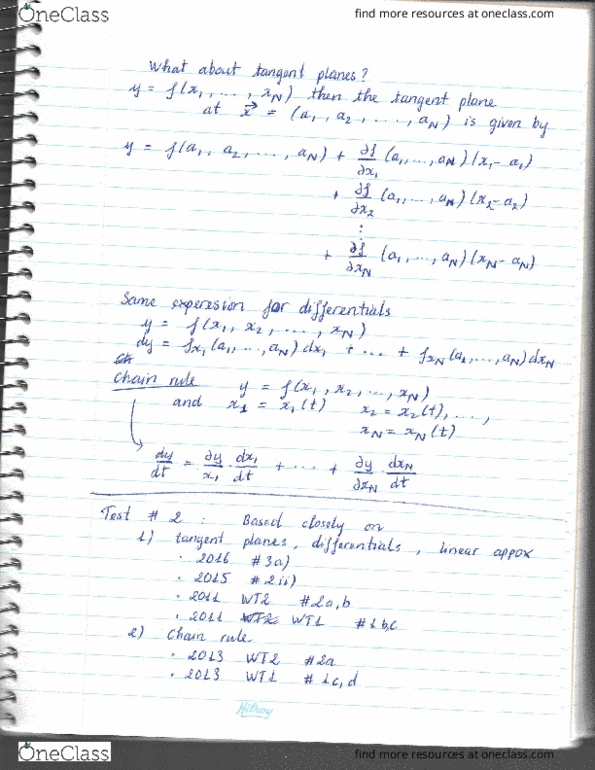 OneClass
find more resources at oneclass.com
What about tangent planes?
y = f(x₁, ..., x_N) then the tangent plane
at x⃗ = (a₁, a₂, ..., a_N) is given by
y = f(a₁, a₂, ..., a_N) + ∂f/∂x₁ (a₁, ..., a_N)(x₁ - a₁)
+ ∂f/∂x₂ (a₁, ..., a_N)(x₂ - a₂)
⋮
+ ∂f/∂x_N (a₁, ..., a_N)(x_N - a_N)
Same experession for differentials
y = f(x₁, x₂, ..., x_N)
dy = f_x₁ (a₁, ..., a_N) dx₁ + ... + f_x_N (a₁, ..., a_N) dx_N
Chain rule y = f(x₁, x₂, ..., x_N)
and x₁ = x₁(t) x₂ = x₂(t), ...,
x_N = x_N(t)
dy/dt = ∂y/x₁ · dx₁/dt + ... + ∂y/∂x_N · dx_N/dt
Test # 2 : Based closely on
1) tangent planes, differentials, linear appox
· 2016 #3a)
· 2015 #2ii)
· 2011 WT2 #2a,b
· 2011 WT2 WT1 #1b,c
2) Chain rule
· 2013 WT2 #2a
· 2013 WT1 #1c,d
Hilroy
OneClass
find more resources at oneclass.com